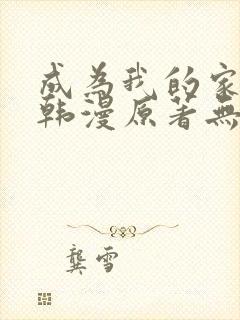 成為我的家
韩漫原著無
龔雪